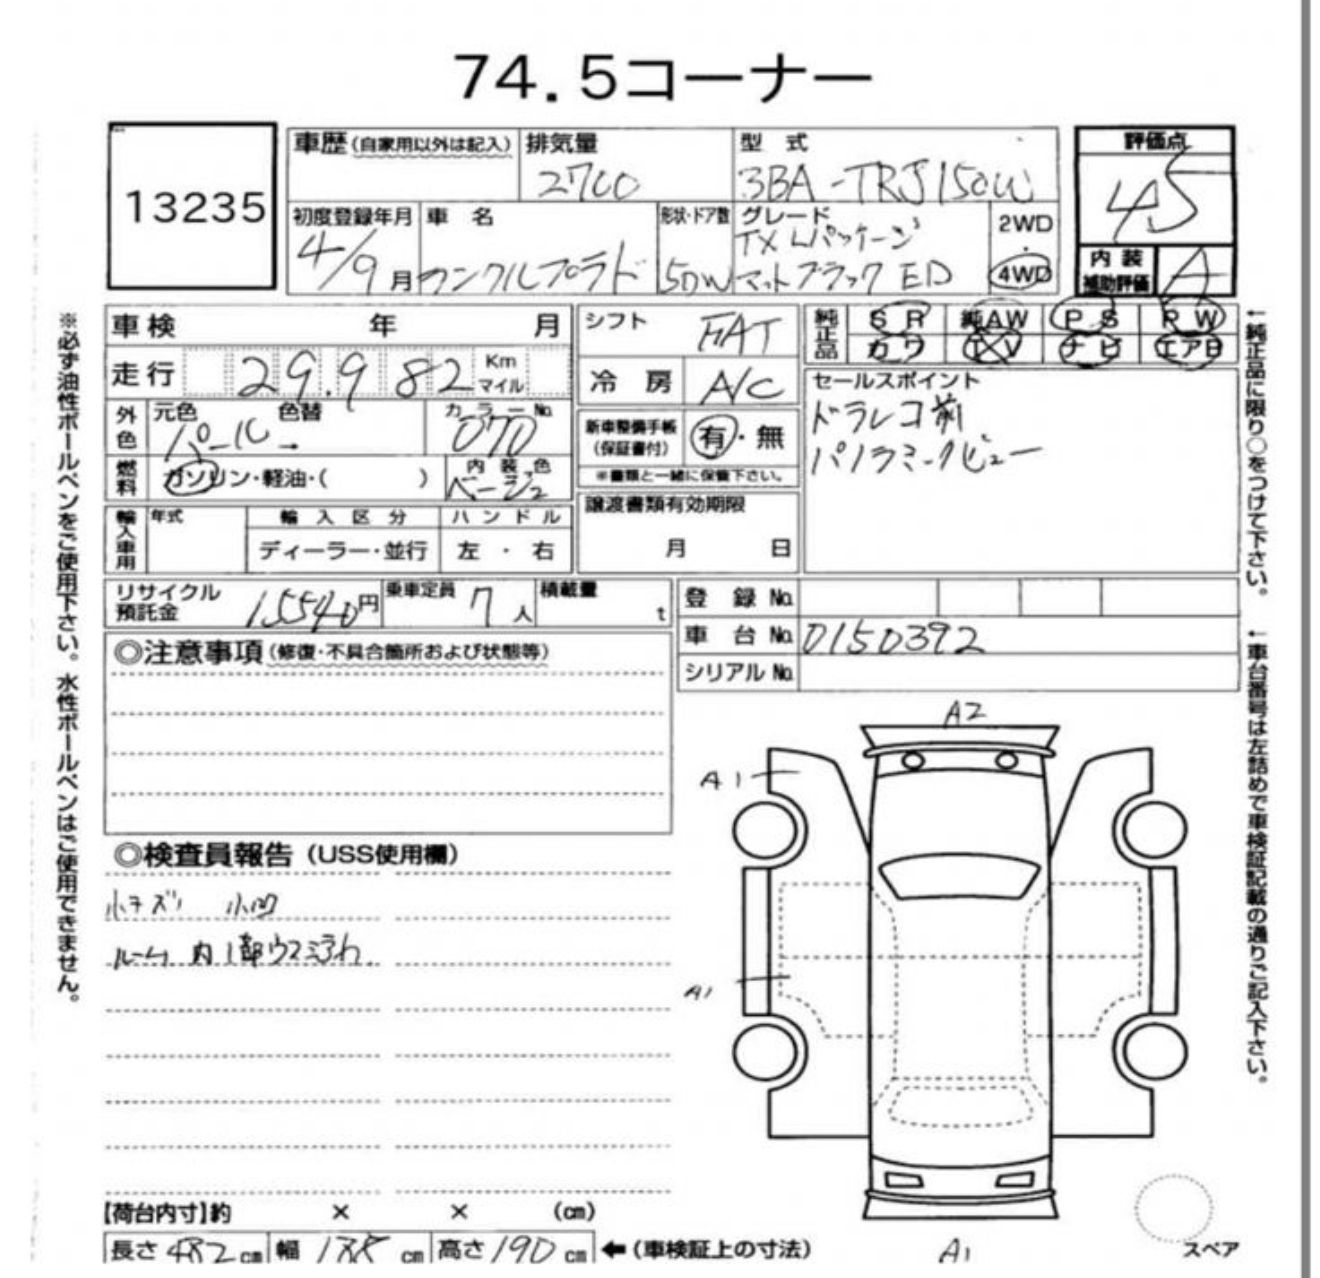 74.5コーナー
13235
車歴(自家用以外は記入)
排気量
2700
型式
3BA-TRJ150W
評価点
4.5
初度登録年月
4/9月
車名
ランクルプラド
形状・ドア数
5DW
グレード
TX Lパッケージ
マットブラックED
2WD
・
4WD
内装
補助評価
A
車検 年 月
走行 29.982 Km
マイル
外色
元色
パール
色替
カラーNo.
070
燃料
ガソリン・軽油・( )
内装色
ベージュ
輸入車用
年式
輸入区分
ディーラー・並行
ハンドル
左・右
シフト FAT
冷房 A/C
新車整備手帳
(保証書付)
有・無
※書類と一緒に保管下さい。
譲渡書類有効期限
月 日
純正品
SR 純AW PS PW
カワ TV ナビ エアB
セールスポイント
ドラレコ前
パノラミックビュー
リサイクル
預託金
15540円
乗車定員 7人
積載量 t
登録No.
車台No. 0150392
シリアルNo.
◎注意事項(修復・不具合箇所および状態等)
◎検査員報告(USS使用欄)
小キズ 小凹
ルーム内1部ウス汚れ
A2
A1
A1
A1
【荷台内寸】約 × × (cm)
長さ 482 cm 幅 188 cm 高さ 190 cm ←(車検証上の寸法)
スペア
※必ず油性ボールペンをご使用下さい。水性ボールペンはご使用できません。
←純正品に限り○をつけて下さい。
←車台番号は左詰めで車検証記載の通りご記入下さい。